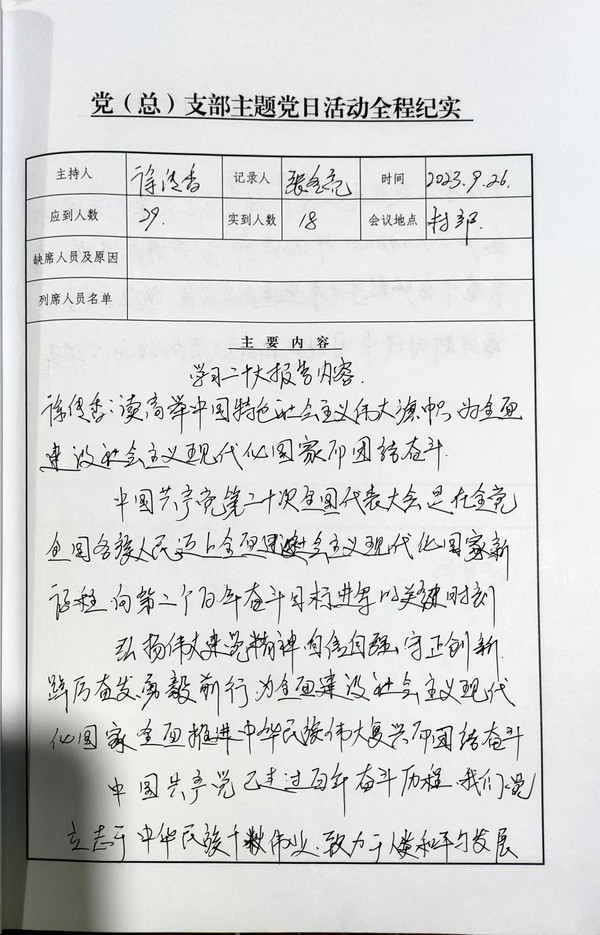 党（总）支部主题党日活动全程纪实
主持人 徐传香 记录人 张金亮 时间 2023.9.26.
应到人数 29. 实到人数 18 会议地点 村部.
缺席人员及原因
列席人员名单
主要内容
学习二十大报告内容.
徐传香:读高举中国特色社会主义伟大旗帜,为全面
建设社会主义现代化国家而团结奋斗.
中国共产党第二十次全国代表大会,是在全党
全国各族人民迈上全面建设社会主义现代化国家新
征程,向第二个百年奋斗目标进军的关键时刻
弘扬伟大建党精神,自信自强,守正创新,
踔厉奋发,勇毅前行,为全面建设社会主义现代
化国家,全面推进中华民族伟大复兴而团结奋斗
中国共产党已走过百年奋斗历程.我们党
立志于中华民族千秋伟业,致力于人类和平与发展